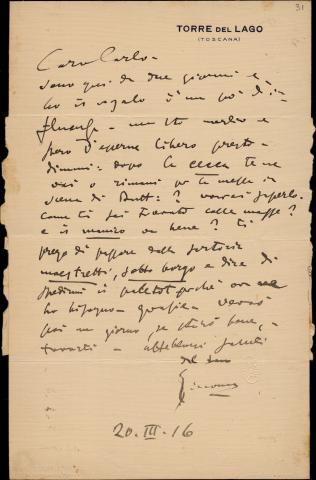 31
TORRE DEL LAGO
(TOSCANA)
Caro Carlo -
sono qui da due giorni e
ho in regalo un po' di in-
fluenza - ma sto meglio e
spero d'esserne libero presto -
dimmi: dopo la cecca te ne
vai o rimani per la messa in
scena di Butt:? vorrei saperlo.
Come ti sei trovato colle masse?
e il va bene? ti
prego di passare dalla sartoria
maestretti, sotto borgo e dire di
spedirmi il paletot poichè ora ne
ho bisogno - grazie - verrò
poi un giorno, se starò bene, a
trovarti - affettuosi saluti
del tuo
Giacomo
20. III. 16